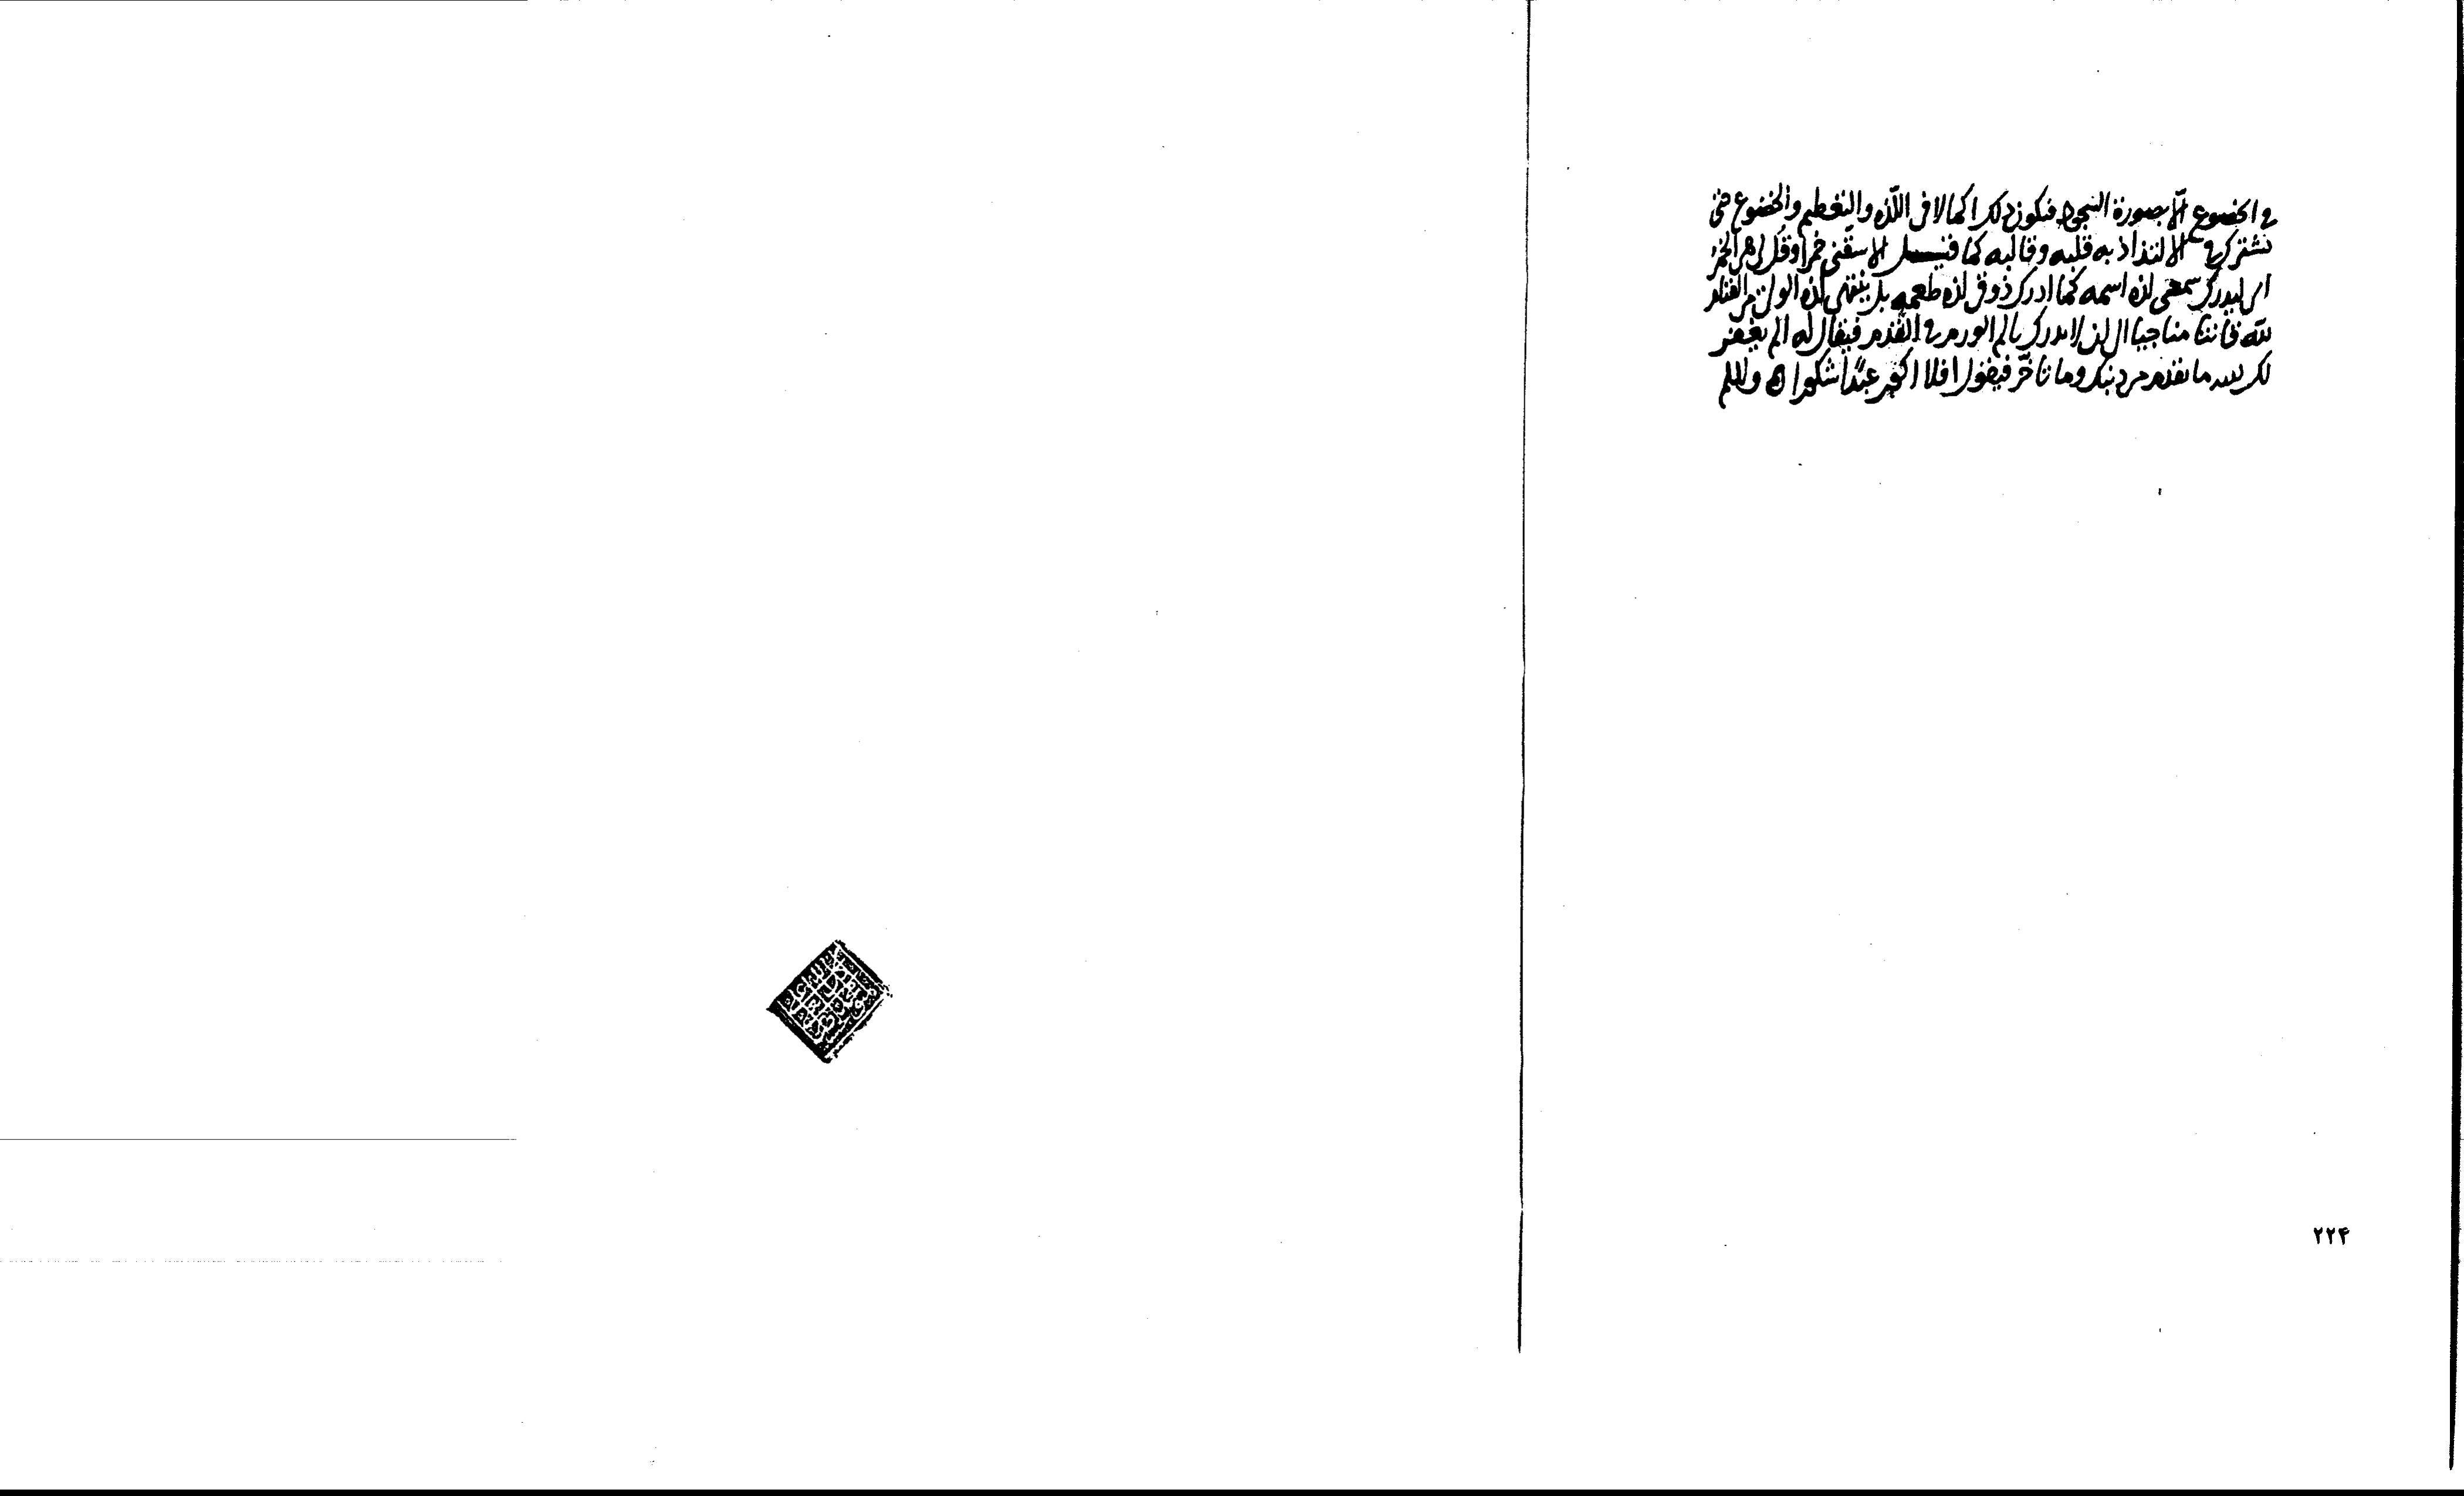 في الخضوع الا بصورة السجود فيكون ذلك اكمالا في اللذه والتعظيم والخضوع حتى
يشترك في الالتذاذ به قلبه وقالبه كما قيل الا سقني خمرا وقل لي هي الخمر
اي ليدرك سمعي لذه اسمه كما ادرك ذوقي لذه طعمه بل ينتهي لذه الى من القيام
لله قانتا مناجيا الى ان لا يدرك بالم الورم في القدم فيقال له الم يغفر
لك الله ما تقدم من ذنبك وما تاخر فيقول افلا اكون عبدا شكورا
۲۲۴